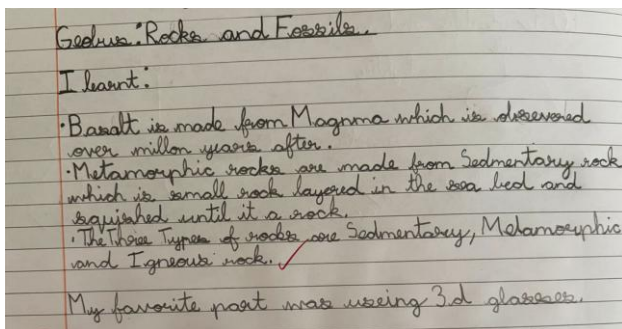 Geobus: Rocks and Fossils.
I learnt:
·Basalt is made from Magnma which is discovered
over millon years after.
·Metamorphic rocks are made from Sedmentary rock
which is small rock layered in the sea bed and
squished until it a rock.
·The Three Types of rocks are Sedmentary, Metamorphic
and Igneous rock.
My favourite part was useing 3.d glasses.